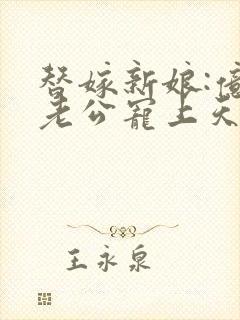 替嫁新娘:億
老公寵上天
王永泉